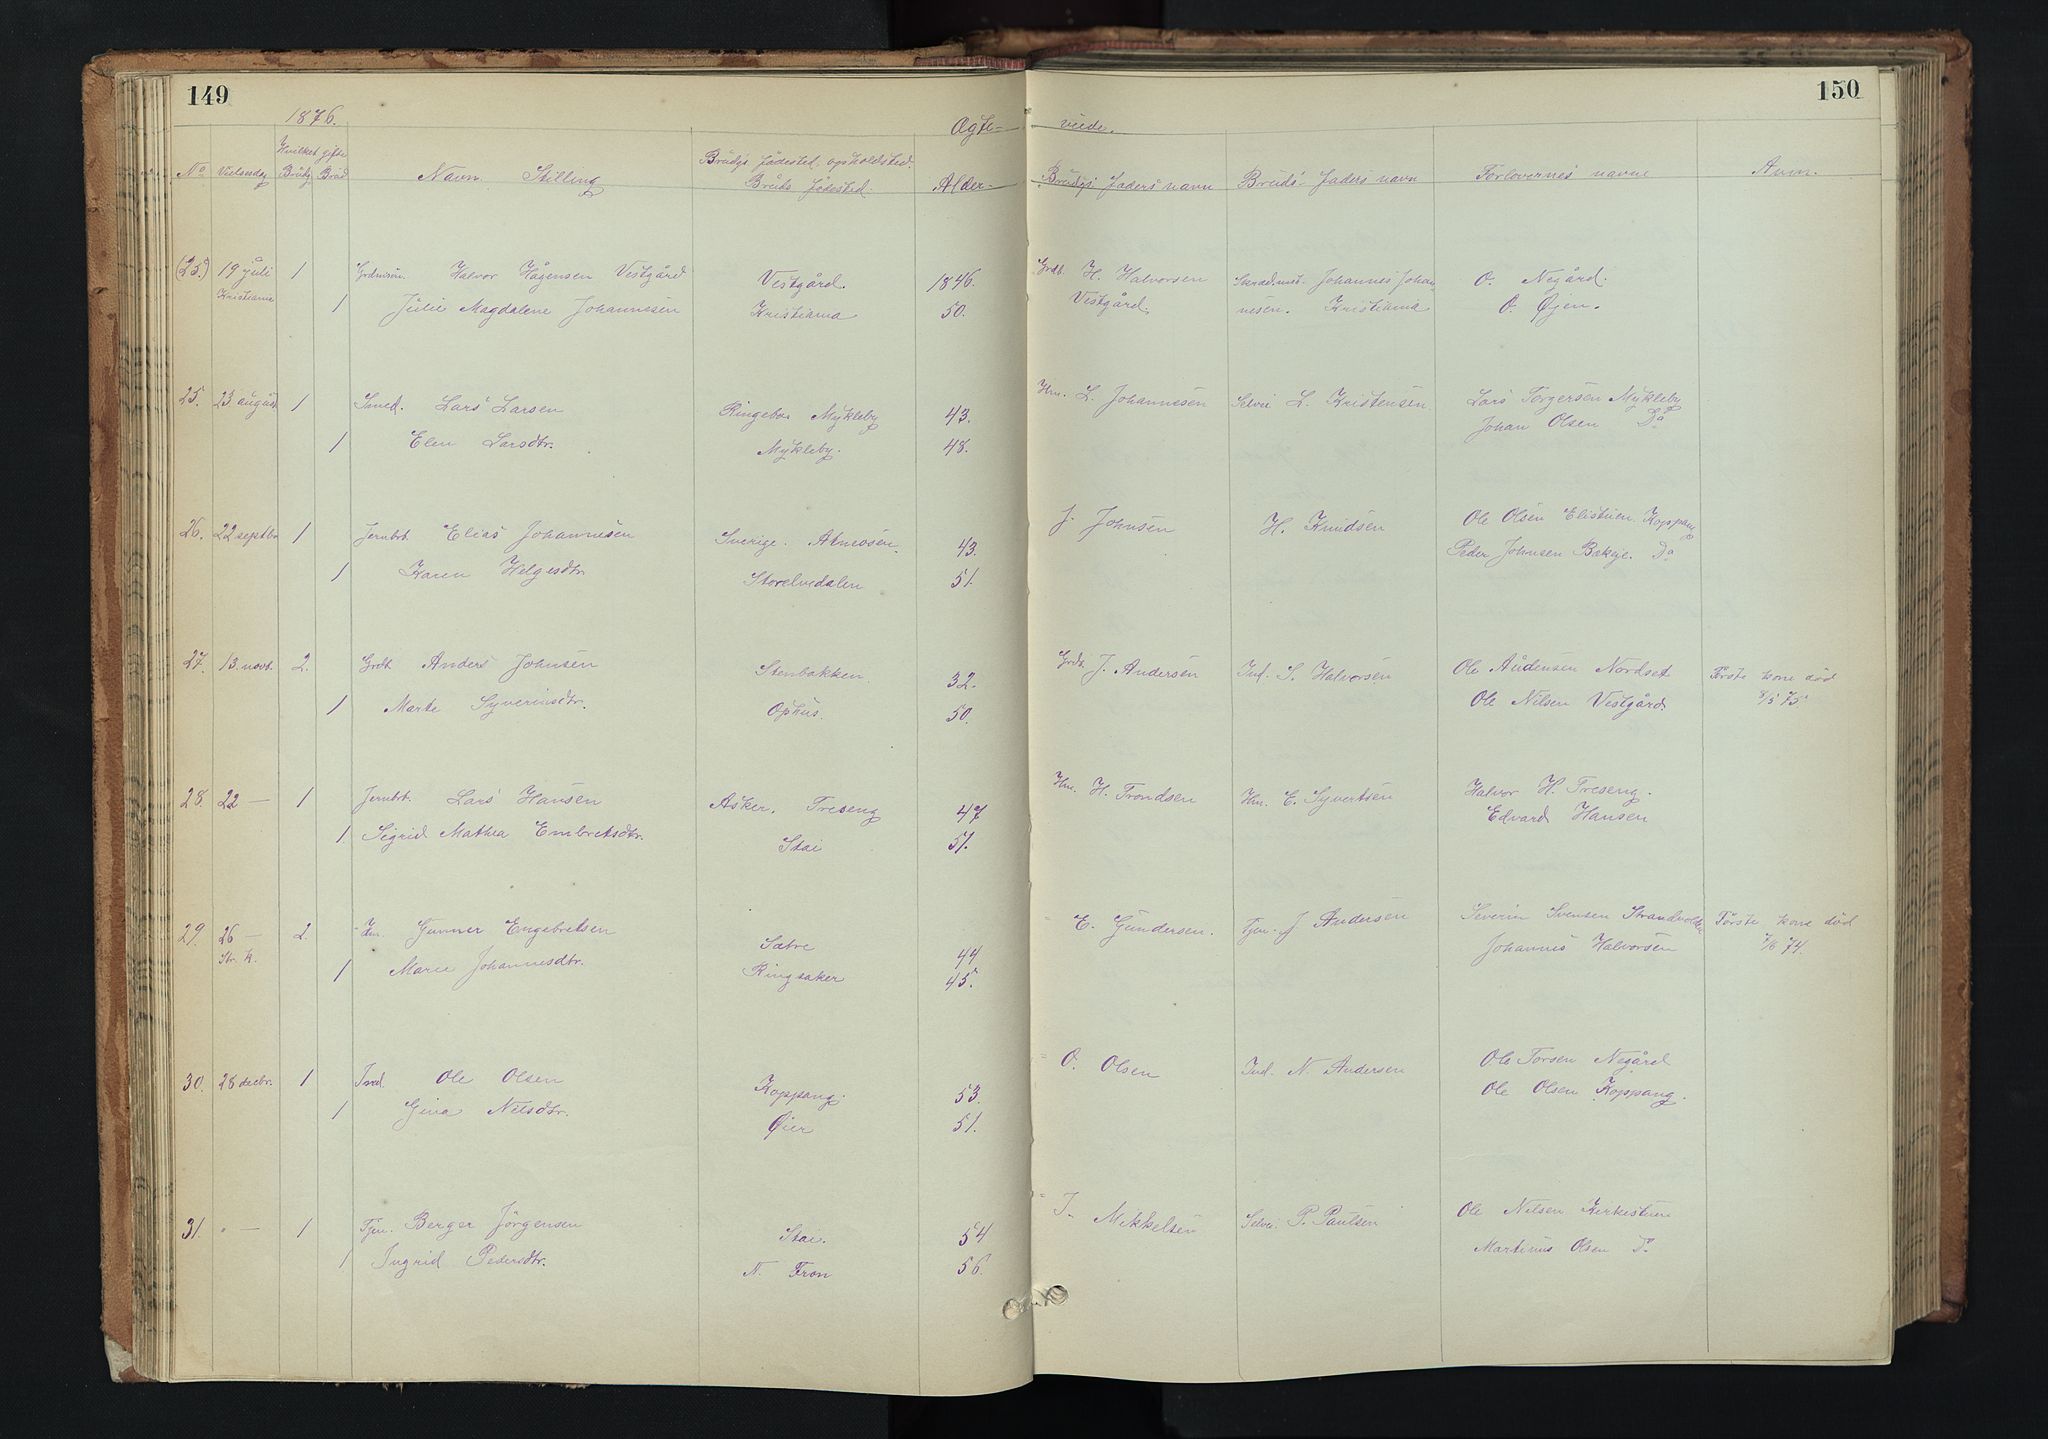 149
150
1876.
Ægte- viede.
No Vielsesdag Hvilket gifte Brudg. Brud Navn Stilling Brudgs fødested. opholdsted. Bruds fødested. Alder Brudgs faders navn Bruds faders navn Forlovernes navne Anm.
(25.) 19 juli 1 Grdmsøn. Halvor Hågensen Vestgård Vestgård. 1846. Grdb. H. Halvorsen Skræd.mst. Johannes Johan- O. Negård.
Kristiania 1 Julie Magdalene Johannesen Kristiania 50. Vestgård. nesen. Kristiania O. Øjen.
25. 23 august 1 Smed. Lars Larsen Ringebo Mykleby 43. Hm. L. Johannesen Selvei L. Kristensen Lars Torgersen Mykleby
1 Elen Larsdtr. Mykleby. 48. Johan Olsen Do
26. 22 septbr 1 Jernbt. Elias Johannesen Sverige. Atneosen. 43. J. Johnsen H. Knudsen Ole Olsen Elistuen. Koppang
1 Karen Helgesdtr. Storelvedalen 51. Peder Johnsen Bekeje. Do
27. 13. novb. 2. Grdb. Anders Johnsen Stenbakken. 32. Grdb. J. Andersen Ind. S. Halvorsen Ole Audensen Nordset Første kone død
1 Marte Syverinsdtr. Ophus. 50. Ole Nilsen Vestgård. 8/5 75.
28. 22 — 1 Jernbt. Lars Hansen Asker. Treseng 47 Hm. H. Trondsen Hm. E. Syvertsen Halvor H. Treseng.
1. Sigrid Mathea Embretsdtr. Stai 51. Edvard Hansen
29. 26 — 2. Hm. Gunner Engebretsen Sætre 44 E. Gundersen. Tjen. J Andersen Severin Svensen Strandvolden Første kone død
Str. k. 1 Marie Johannesdtr. Ringsaker 45. Johannes Halvorsen 7/6 74.
30. 28 decbr. 1 Ind. Ole Olsen Koppang. 53. O. Olsen Ind. N. Andersen Ole Torsen Negård
1 Gina Nilsdtr. Øier 51. Ole Olsen Koppang.
31. " — 1 Tjen. Berger Jörgensen Stai. 54 J. Mikkelsen Selvei. P. Paulsen Ole Nilsen Kirkestuen
1 Ingrid Pedersdtr. N. Fron 56. Martinus Olsen Do